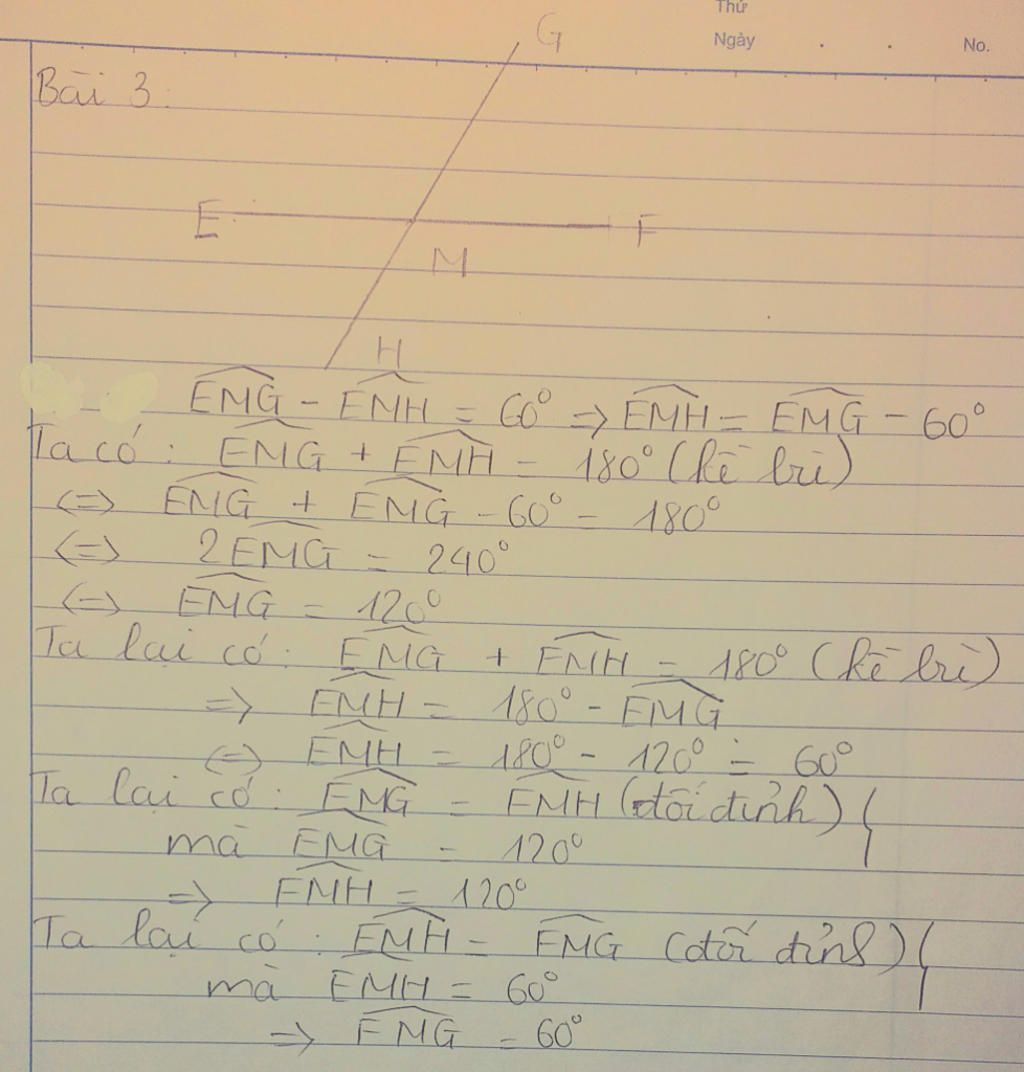 Thứ
Ngày . . No.
Bài 3:
G
E F
M
H
EMG - EMH = 60° => EMH = EMG - 60°
Ta có: EMG + EMH = 180° (kề bù)
<=> EMG + EMG - 60° = 180°
<=> 2EMG = 240°
<=> EMG = 120°
Ta lại có: EMG + EMH = 180° (kề bù)
=> EMH = 180° - EMG
<=> EMH = 180° - 120° = 60°
Ta lại có: EMG = FMH (đối đỉnh) {
mà EMG = 120°
=> FMH = 120°
Ta lại có: EMH = FMG (đối đỉnh) {
mà EMH = 60°
=> FMG = 60°